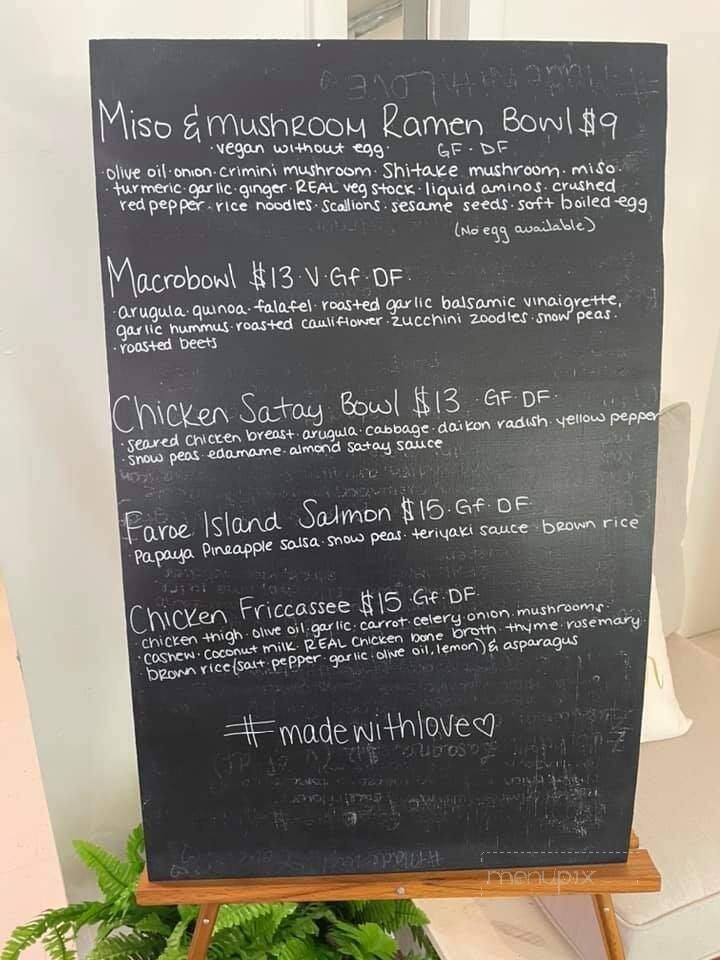 Miso & mushroom Ramen Bowl $9
· vegan without egg · GF · DF
· olive oil · onion · crimini mushroom · Shitake mushroom · miso ·
· turmeric · garlic · ginger · REAL veg stock · liquid aminos · crushed
red pepper · rice noodles · scallions · sesame seeds · soft boiled egg
(No egg available)
Macrobowl $13 · V · Gf · DF ·
· arugula · quinoa · falafel · roasted garlic balsamic vinaigrette,
garlic hummus · roasted cauliflower · zucchini zoodles · snow peas ·
· roasted beets
Chicken Satay Bowl $13 GF · DF ·
· seared chicken breast · arugula · cabbage · daikon radish · yellow pepper
· snow peas · edamame · almond satay sauce
Faroe Island Salmon $15 · Gf · DF ·
· Papaya Pineapple salsa · snow peas · teriyaki sauce · brown rice
Chicken Friccassee $15 Gf · DF ·
· chicken thigh · olive oil · garlic · carrot · celery · onion · mushrooms ·
· cashew · coconut milk · REAL Chicken bone broth · thyme · rosemary ·
brown rice (salt · pepper · garlic · olive oil, lemon) & asparagus
#madewithlove♡
menupix